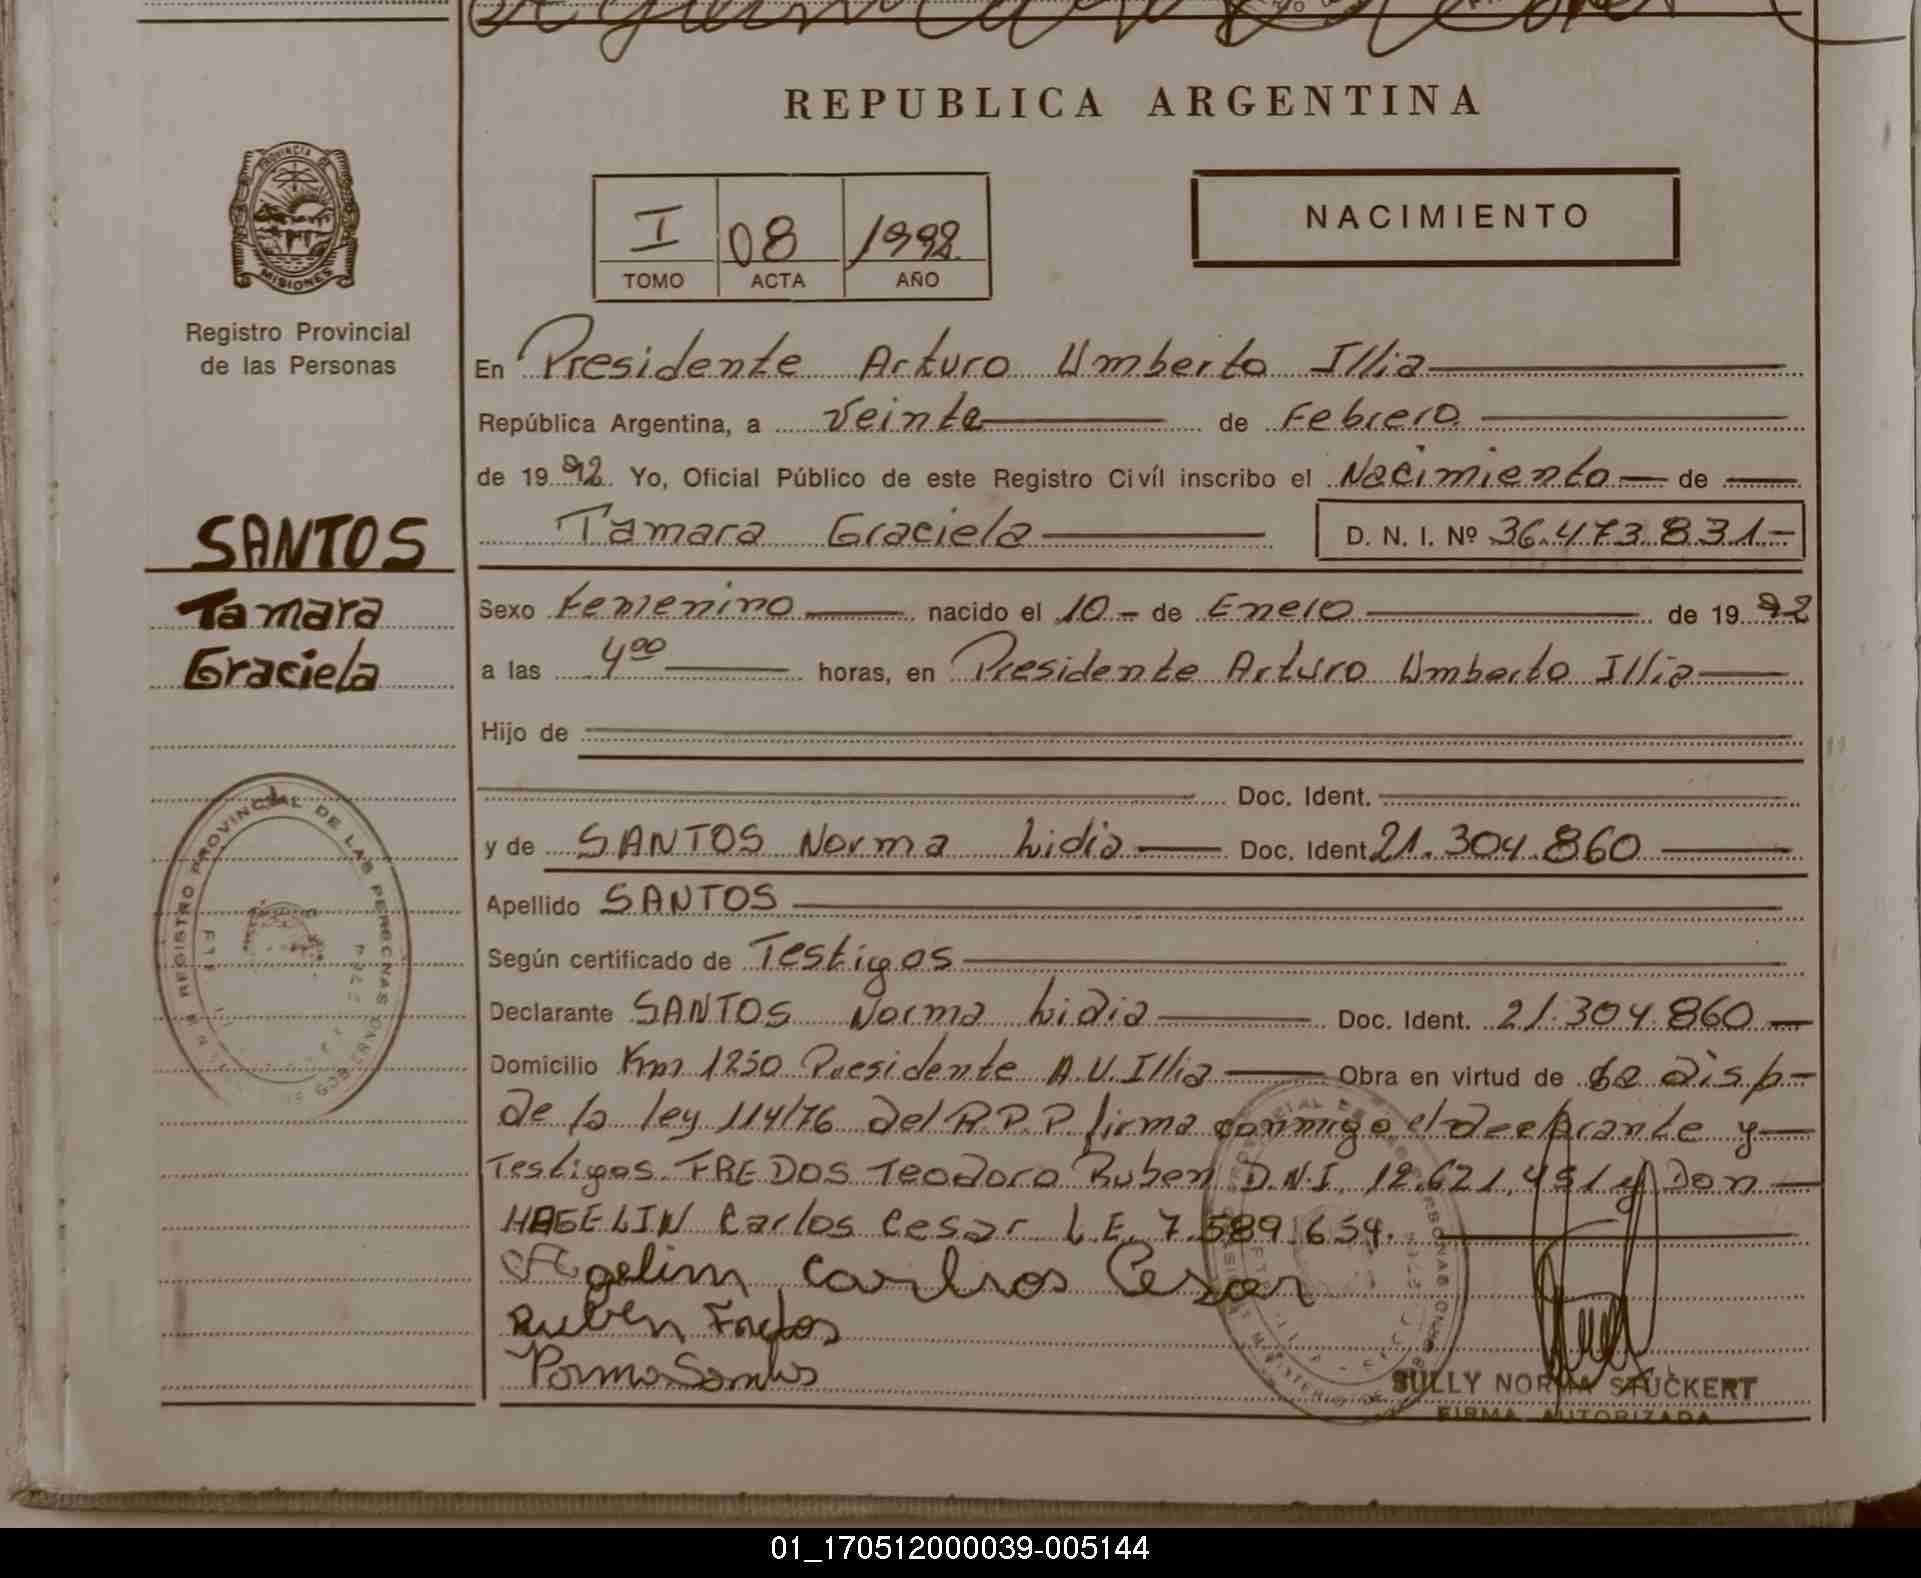 REPUBLICA ARGENTINA
PROVINCIA DE
MISIONES
Registro Provincial
de las Personas
I 08 1992
TOMO ACTA AÑO
NACIMIENTO
En Presidente Arturo Umberto Illia
República Argentina, a veinte de Febrero
de 1992 Yo, Oficial Público de este Registro Civíl inscribo el Nacimiento de
Tamara Graciela D. N. I. Nº 36.473.831-
SANTOS
Tamara
Graciela
Sexo Femenino nacido el 10 - de Enero de 1992
a las 4⁰⁰ horas, en Presidente Arturo Umberto Illia
Hijo de
Doc. Ident.
y de SANTOS Norma Lidia Doc. Ident. 21.304.860
Apellido SANTOS
Según certificado de Testigos
Declarante SANTOS Norma Lidia Doc. Ident. 21.304.860
Domicilio Km 1250 Presidente A.U. Illia Obra en virtud de la disp-
de la ley 114/76 del R.P.P firma conmigo el declarante y
Testigos FREDOS Teodoro Ruben D.N.I. 12.621.451 y Don
HAGELIN Carlos Cesar L.E. 7.589.654.
Agelim Carlros Cesar
Ruben Fredos
Norma Santos
REGISTRO PROVINCIAL DE LAS PERSONAS
SULLY NORMA STUCKERT
FIRMA AUTORIZADA
01_170512000039-005144